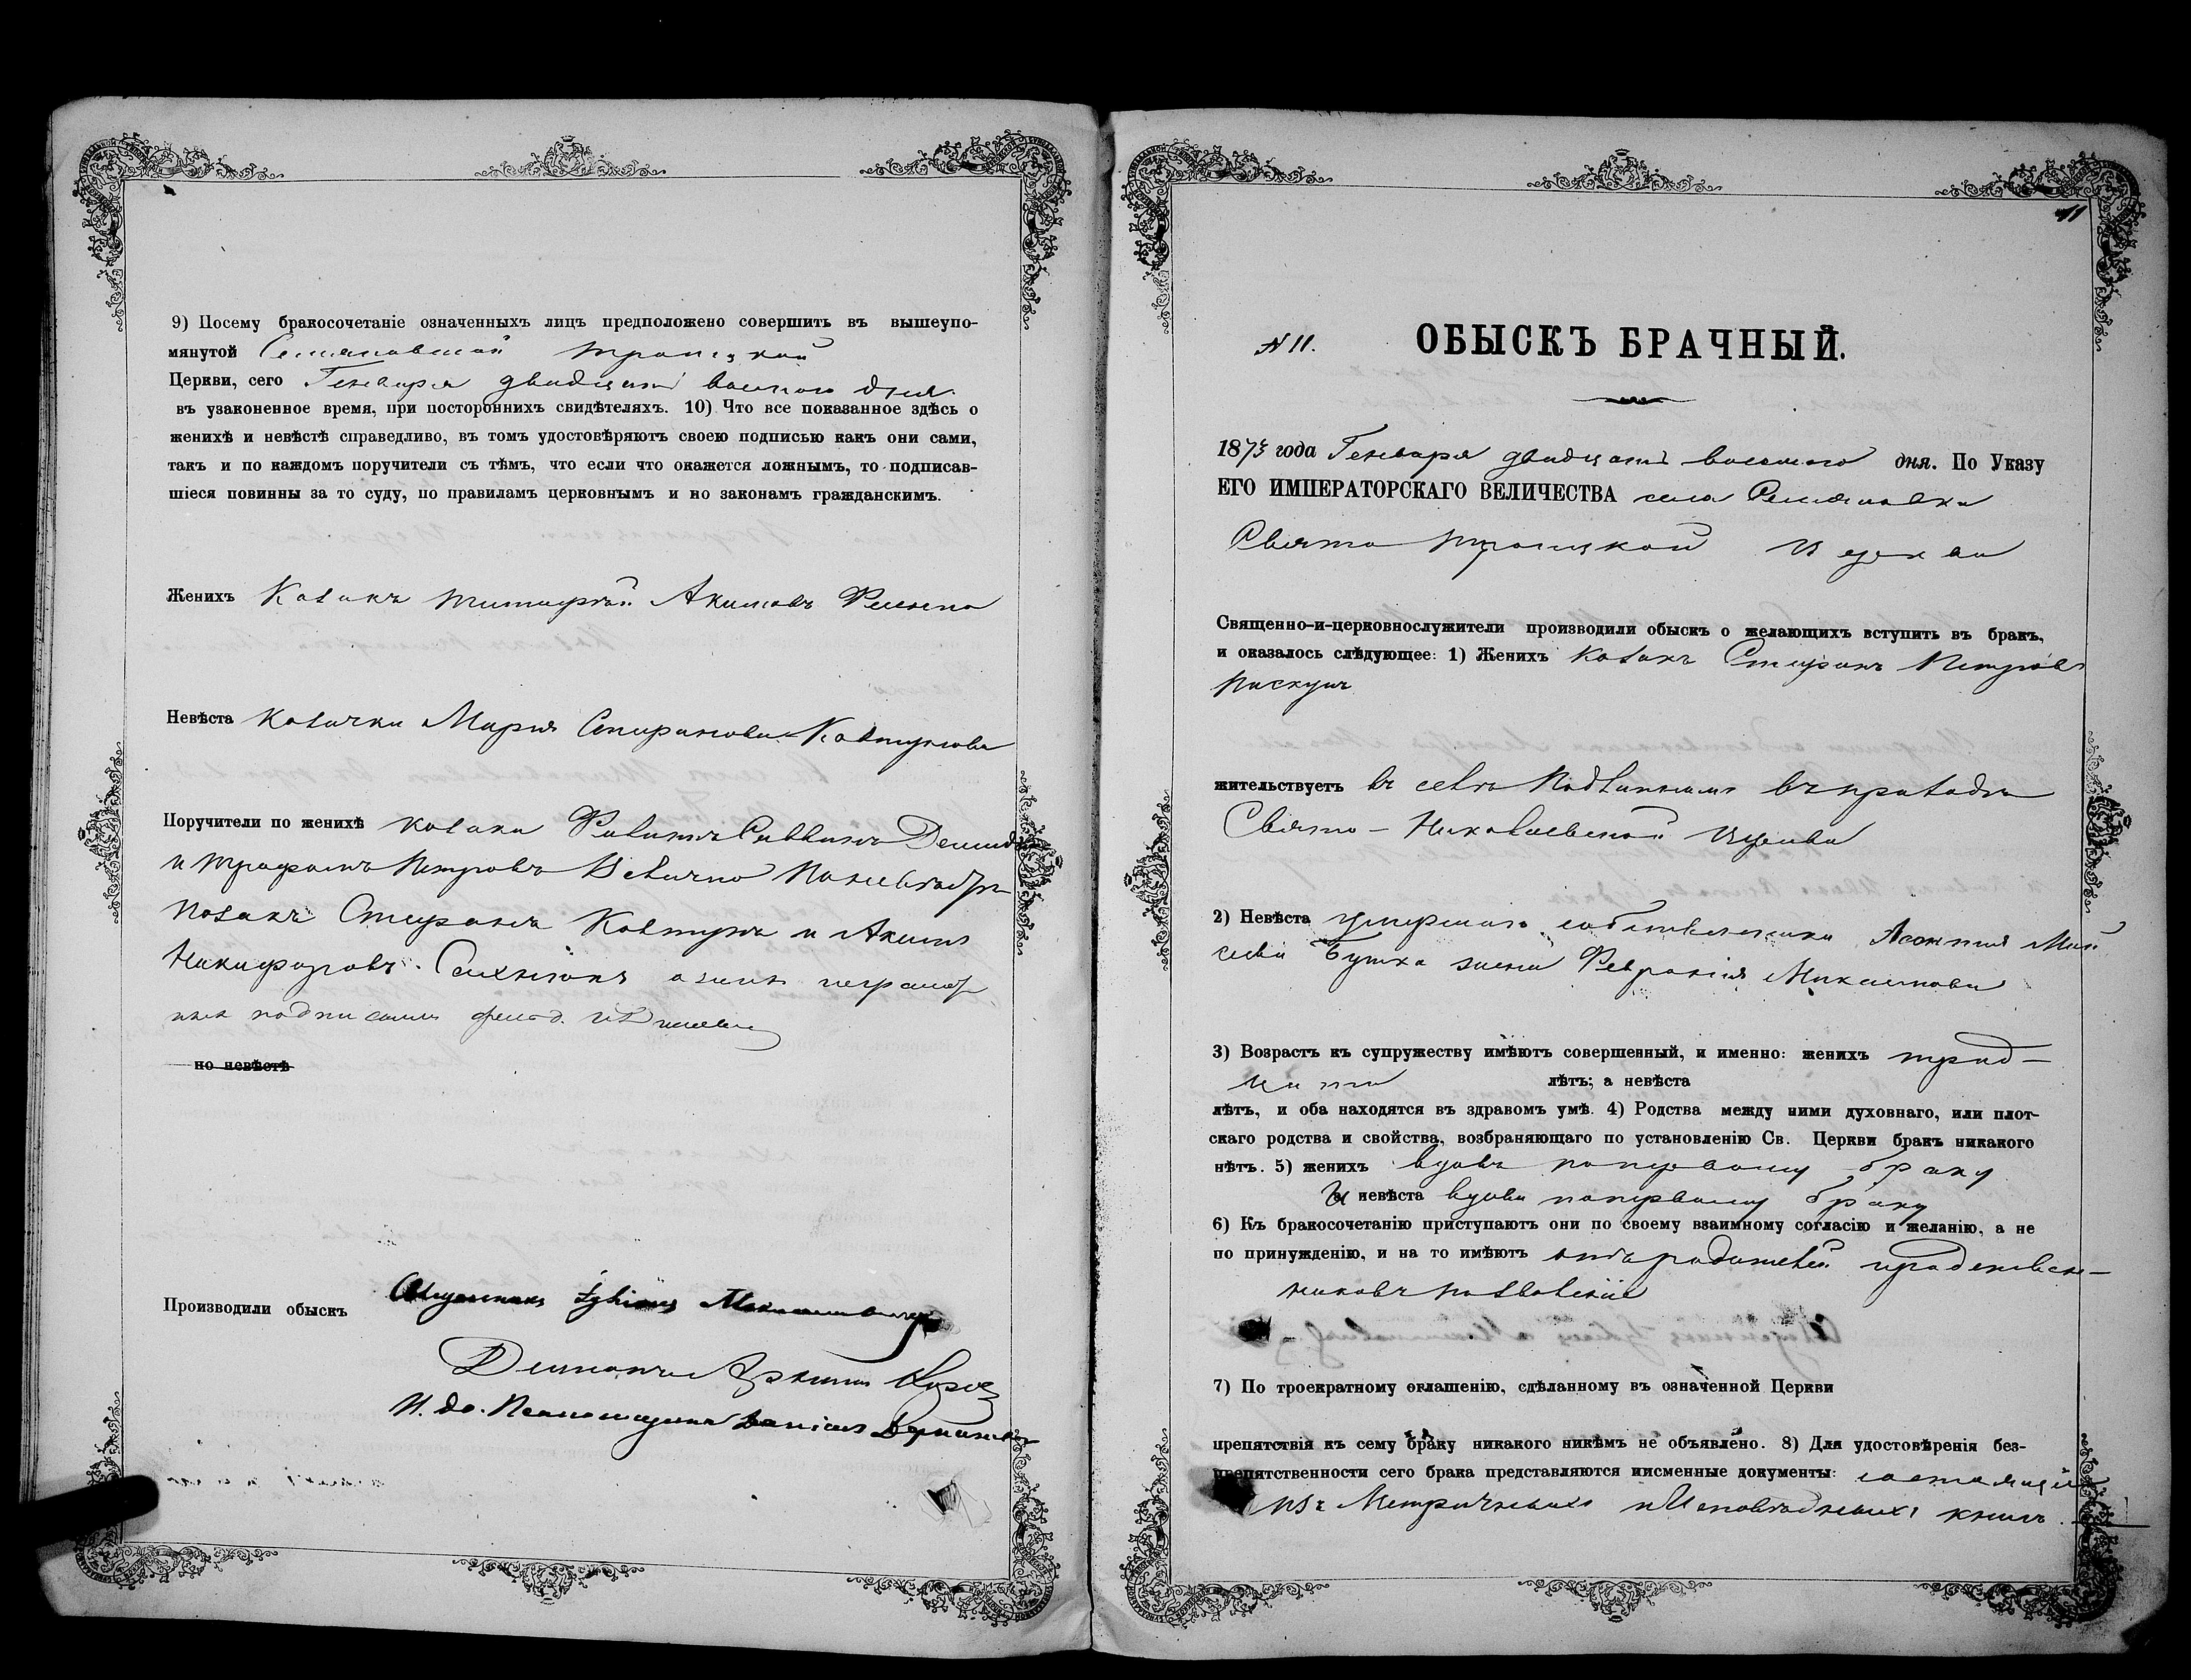 9) Посему бракосочетаніе означенныхъ лицъ предположено совершить въ вышеупо-
мянутой Семяновской Троицкой
Церкви, сего Генваря двадцать восьмого дня
въ узаконенное время, при постороннихъ свидѣтеляхъ. 10) Что все показанное здѣсь о
женихѣ и невѣстѣ справедливо, въ томъ удостовѣряютъ своею подписью какъ они сами,
такъ и по каждомъ поручители съ тѣмъ, что если что окажется ложнымъ, то подписав-
шіеся повинны за то суду, по правиламъ церковнымъ и по законамъ гражданскимъ.
Женихъ Козакъ Тимофѣй Акимовъ
Невѣста Козачка Марія Стефанова Ковтунова
Поручители по женихѣ козаки Саввинъ
и Трофимъ Петровъ
козакъ Стефанъ Ковтунъ и Акимъ
Никифоровъ а за нихъ неграмот
ныхъ подписался
по невѣстѣ
Производили обыскъ Священникъ
Діаконъ
И. до. Псаломщика
11
N 11. ОБЫСКЪ БРАЧНЫЙ.
1873 года Генваря двадцать восьмого дня. По Указу
ЕГО ИМПЕРАТОРСКАГО ВЕЛИЧЕСТВА села Семяновки
Свято Троицкой Церкви
Священно-и-церковнослужители производили обыскъ о желающихъ вступить въ бракъ,
и оказалось слѣдующее: 1) Женихъ козакъ Стефанъ Петровъ
Пискунъ
жительствуетъ въ селѣ въ приходѣ
Свято-Николаевской Церкви
2) Невѣста умершаго собственника Леонтія Мои
сеева жена Февронія Максимова
3) Возрастъ къ супружеству имѣютъ совершенный, и именно: женихъ трид-
цати лѣтъ; а невѣста
лѣтъ, и оба находятся въ здравомъ умѣ. 4) Родства между ними духовнаго, или плот-
скаго родства и свойства, возбраняющаго по установленію Св. Церкви бракъ никакого
нѣтъ. 5) женихъ вдовъ по первому браку
и невѣста вдова по первому браку
6) Къ бракосочетанію приступаютъ они по своему взаимному согласію и желанію, а не
по принужденію, и на то имѣютъ отъ родителей и родствен-
никовъ позволеніе
7) По троекратному оглашенію, сдѣланному въ означенной Церкви
препятствія къ сему браку никакого никѣмъ не объявлено. 8) Для удостовѣренія без-
препятственности сего брака представляются письменные документы: состоящіе
изъ Метричныхъ и Исповѣдныхъ книгъ